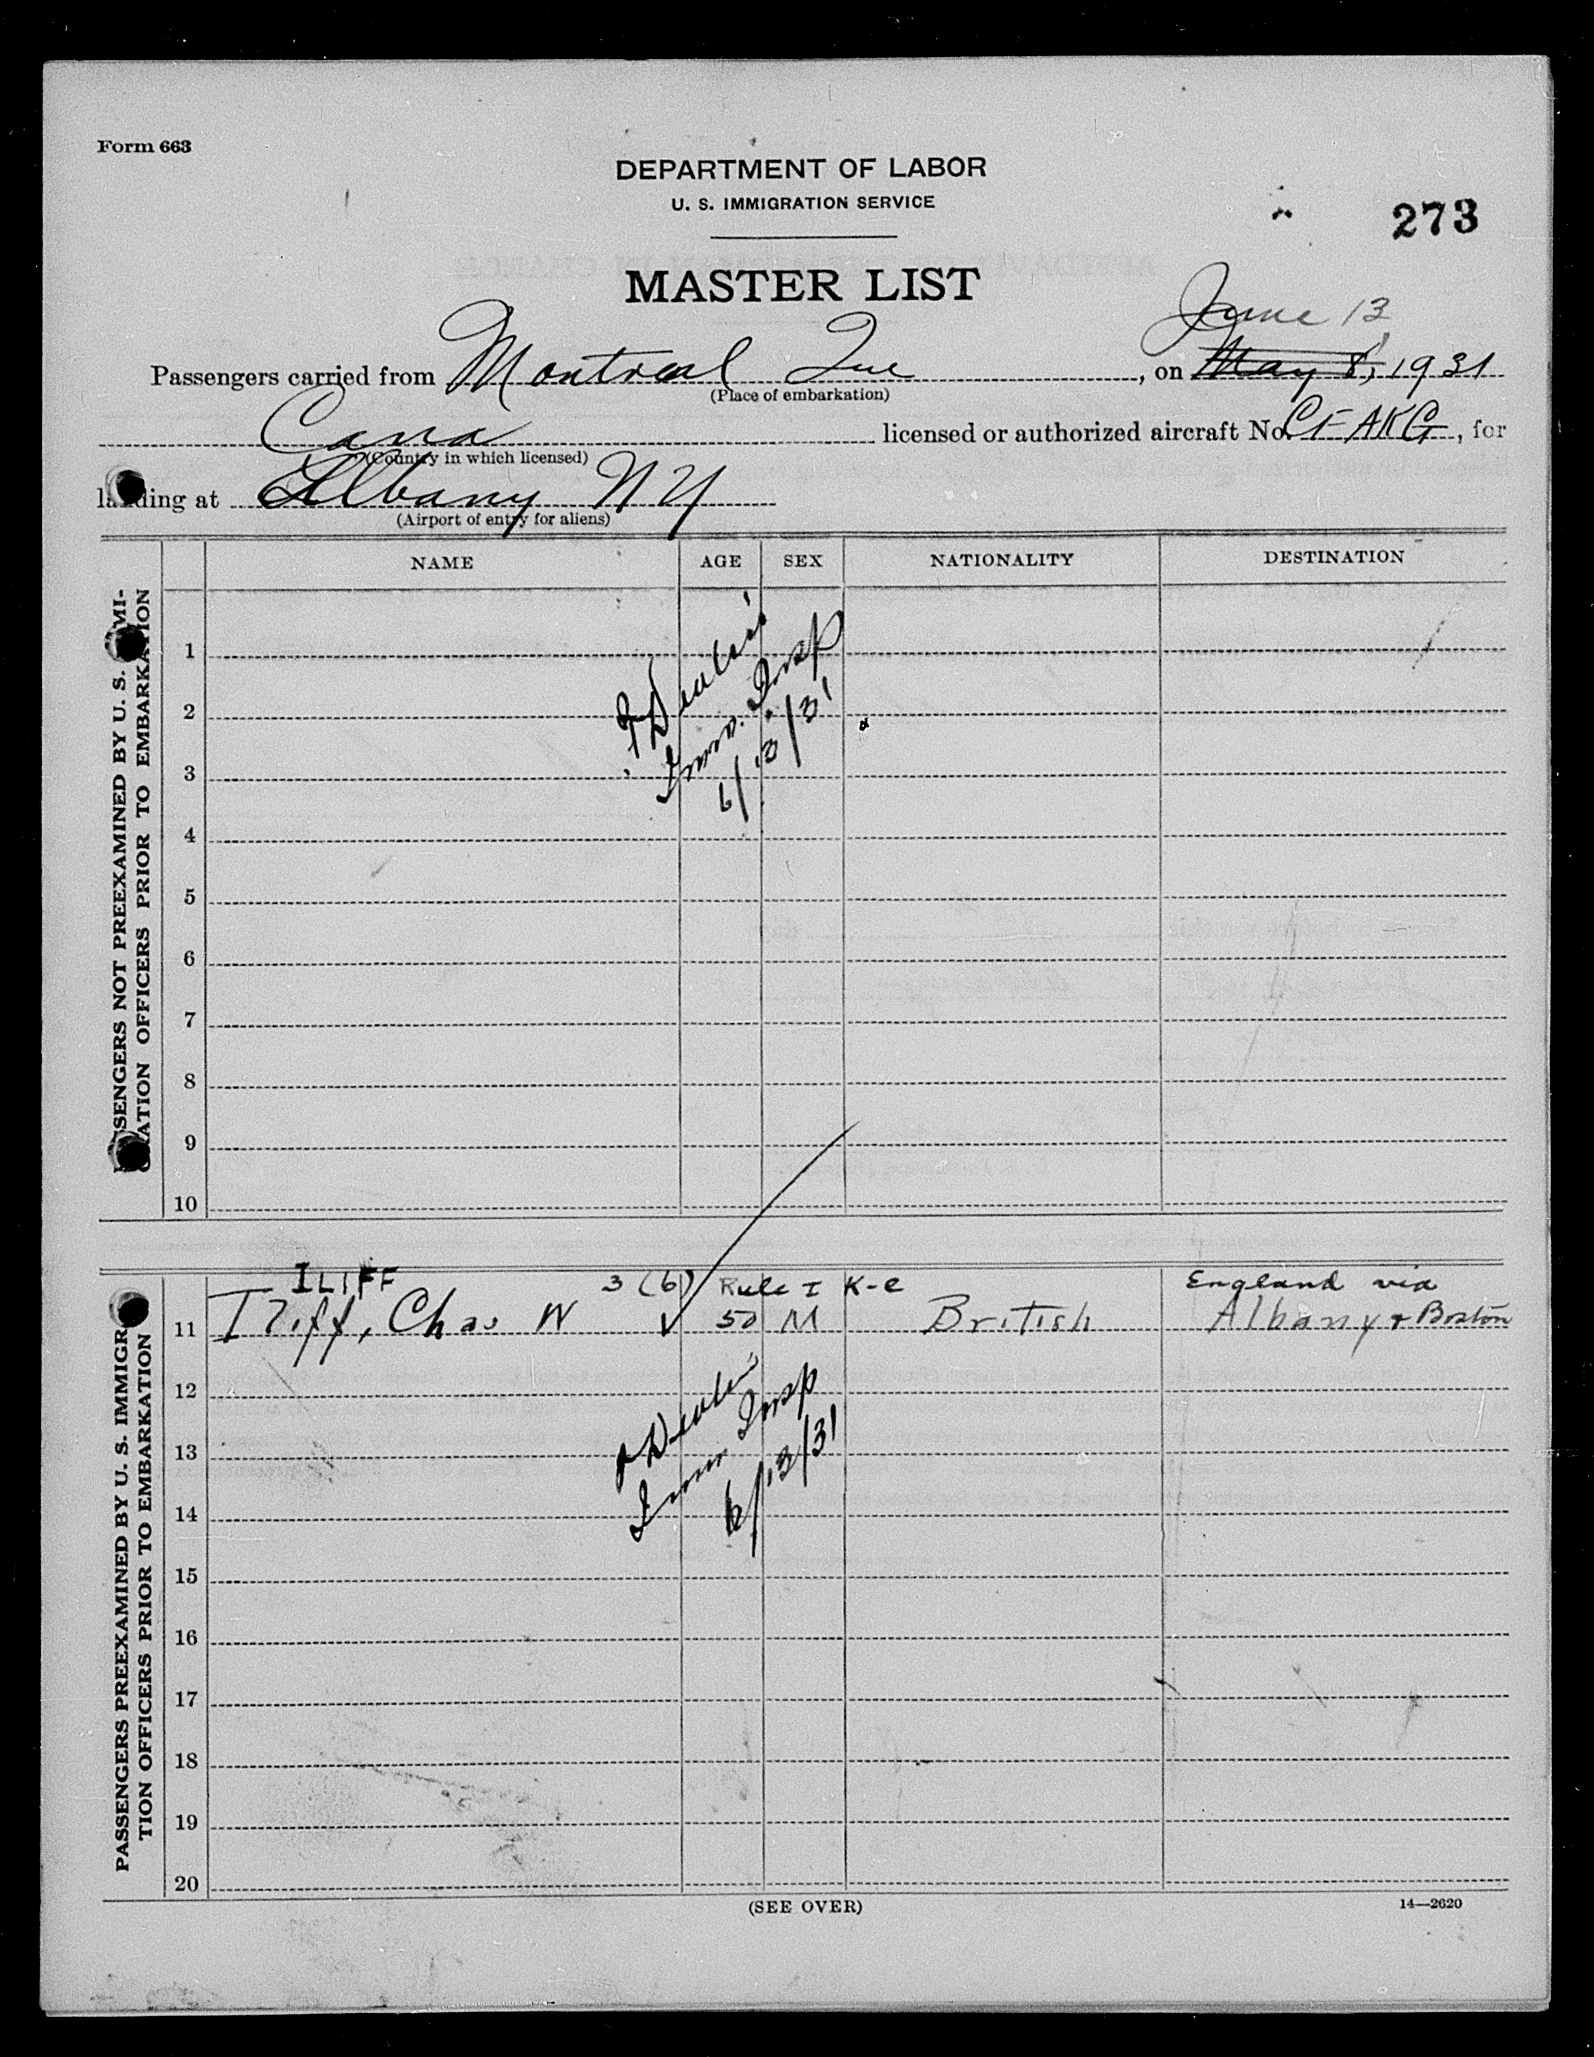 Form 663
DEPARTMENT OF LABOR
U. S. IMMIGRATION SERVICE
273
MASTER LIST
June 13
Passengers carried from Montreal Que, on May 8, 1931
(Place of embarkation)
Cana licensed or authorized aircraft No. CF AKG, for
(Country in which licensed)
landing at Albany NY
(Airport of entry for aliens)
NAME AGE SEX NATIONALITY DESTINATION
PASSENGERS NOT PREEXAMINED BY U. S. IMMI-
GRATION OFFICERS PRIOR TO EMBARKATION
1
2
3
Imm. Insp
6/13/31
4
5
6
7
8
9
10
PASSENGERS PREEXAMINED BY U. S. IMMIGRA-
TION OFFICERS PRIOR TO EMBARKATION
ILIFF 3 (6) Rule I K-e England via
11 Iliff, Chas W 50 M British Albany & Boston
12
13
Imm Insp
6/13/31
14
15
16
17
18
19
20
(SEE OVER)
14—2620